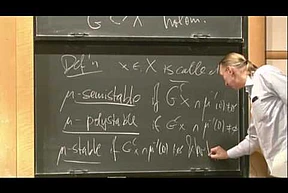 G^C X holom.
Def'n x ∈ X is called
μ-semistable if \overline{G^C x} ∩ μ^{-1}(0) ≠ ∅
μ-polystable if G^C x ∩ μ^{-1}(0) ≠ ∅
μ-stable if G^C x ∩ μ^{-1}(0) ≠ ∅